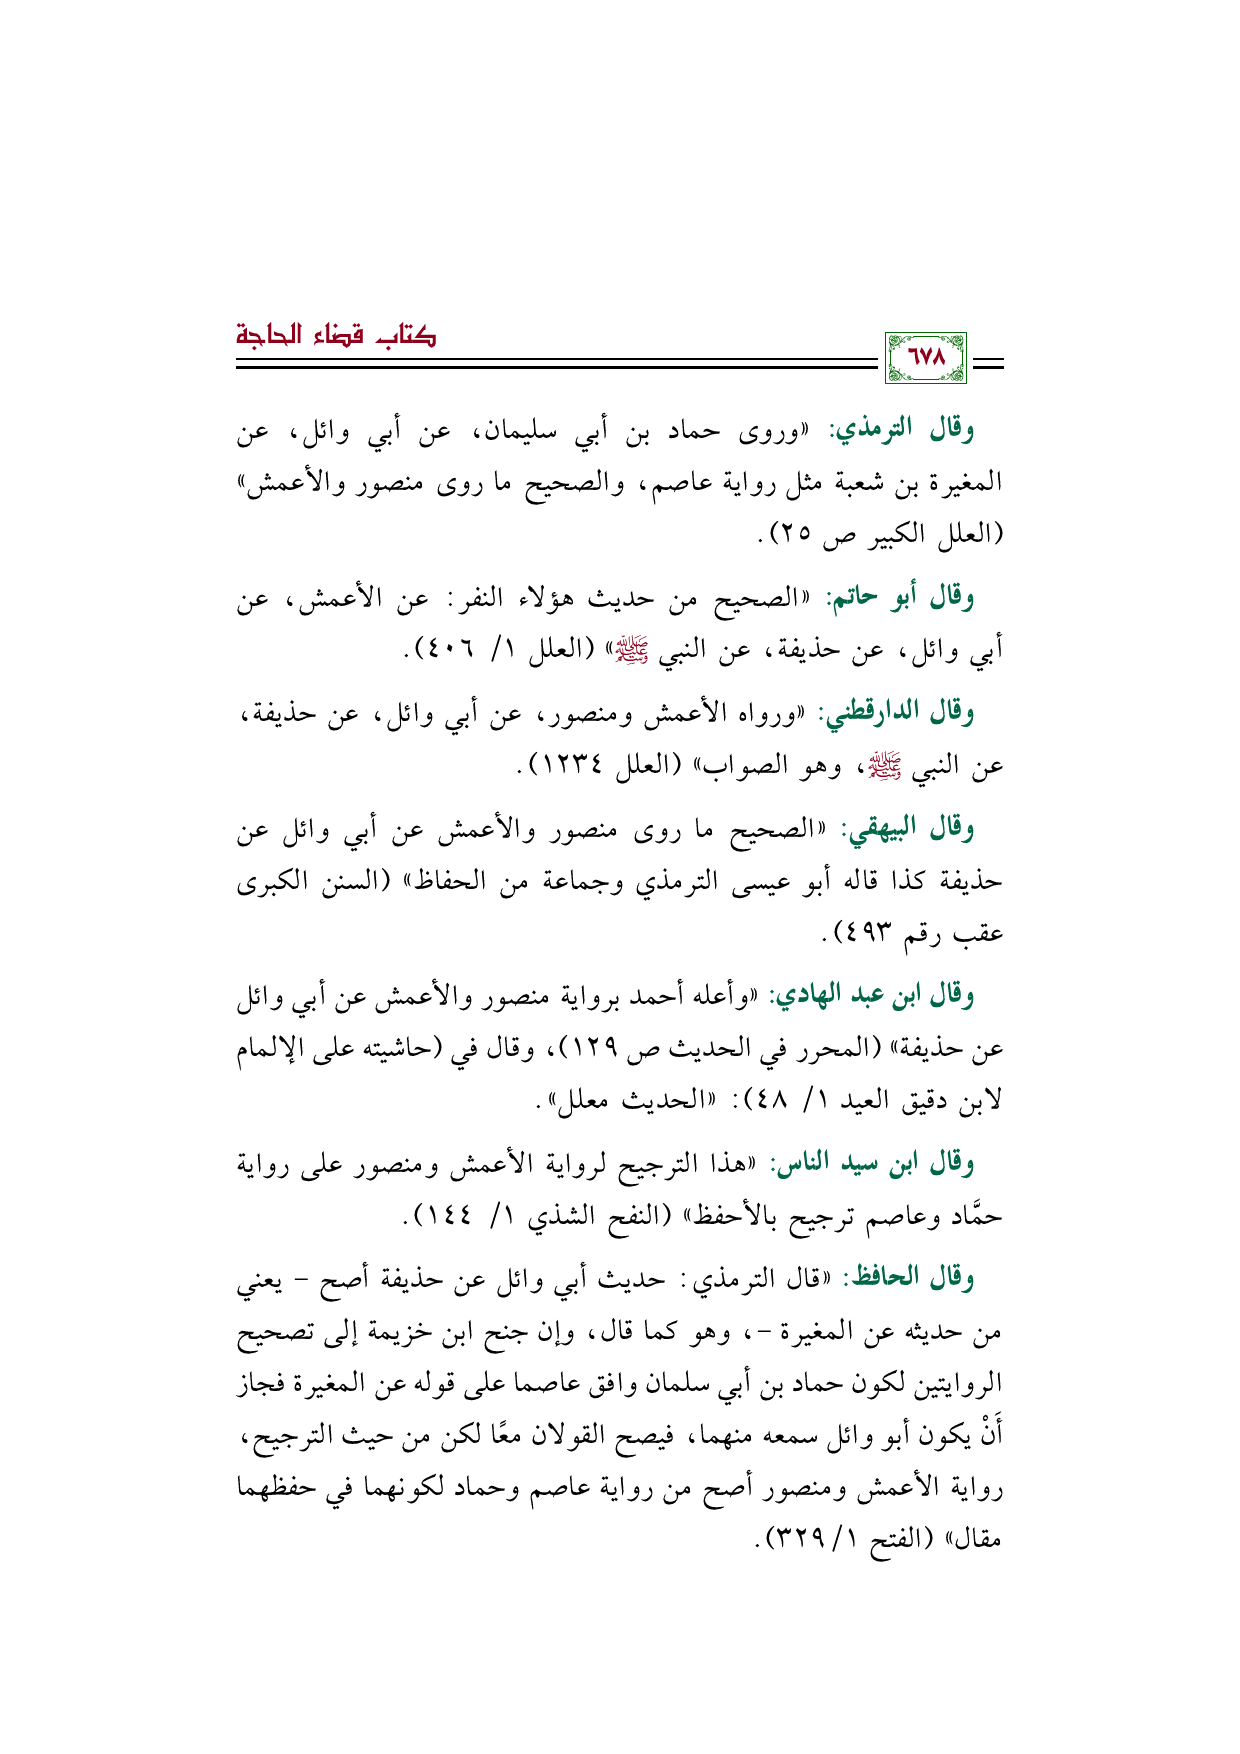 كتاب قضاء الحاجة
٦٧٨
وقال الترمذي: «وروى حماد بن أبي سليمان، عن أبي وائل، عن
المغيرة بن شعبة مثل رواية عاصم، والصحيح ما روى منصور والأعمش»
(العلل الكبير ص ٢٥).
وقال أبو حاتم: «الصحيح من حديث هؤلاء النفر: عن الأعمش، عن
أبي وائل، عن حذيفة، عن النبي ﷺ» (العلل ١/ ٤٠٦).
وقال الدارقطني: «ورواه الأعمش ومنصور، عن أبي وائل، عن حذيفة،
عن النبي ﷺ، وهو الصواب» (العلل ١٢٣٤).
وقال البيهقي: «الصحيح ما روى منصور والأعمش عن أبي وائل عن
حذيفة كذا قاله أبو عيسى الترمذي وجماعة من الحفاظ» (السنن الكبرى
عقب رقم ٤٩٣).
وقال ابن عبد الهادي: «وأعله أحمد برواية منصور والأعمش عن أبي وائل
عن حذيفة» (المحرر في الحديث ص ١٢٩)، وقال في (حاشيته على الإلمام
لابن دقيق العيد ١/ ٤٨): «الحديث معلل».
وقال ابن سيد الناس: «هذا الترجيح لرواية الأعمش ومنصور على رواية
حمَّاد وعاصم ترجيح بالأحفظ» (النفح الشذي ١/ ١٤٤).
وقال الحافظ: «قال الترمذي: حديث أبي وائل عن حذيفة أصح - يعني
من حديثه عن المغيرة -، وهو كما قال، وإن جنح ابن خزيمة إلى تصحيح
الروايتين لكون حماد بن أبي سلمان وافق عاصما على قوله عن المغيرة فجاز
أَنْ يكون أبو وائل سمعه منهما، فيصح القولان معًا لكن من حيث الترجيح،
رواية الأعمش ومنصور أصح من رواية عاصم وحماد لكونهما في حفظهما
مقال» (الفتح ١/ ٣٢٩).